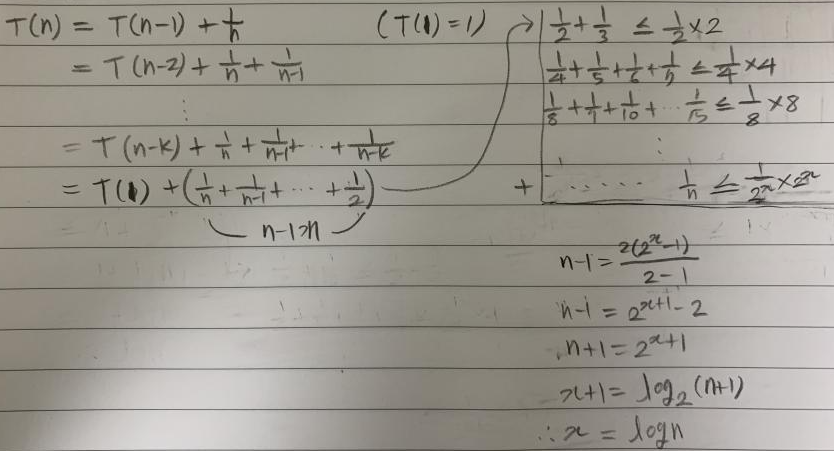 T(n) = T(n-1) + 1/n (T(1)=1)
= T(n-2) + 1/n + 1/(n-1)
⋮
= T(n-k) + 1/n + 1/(n-1) + ⋯ + 1/(n-k)
= T(1) + (1/n + 1/(n-1) + ⋯ + 1/2)
n-1개
1/2 + 1/3 ≤ 1/2 × 2
1/4 + 1/5 + 1/6 + 1/7 ≤ 1/4 × 4
1/8 + 1/9 + 1/10 + ⋯ 1/15 ≤ 1/8 × 8
⋮
+ ⋯⋯ 1/n ≤ 1/2^x × 2^x
n-1 = 2(2^x-1)/(2-1)
n-1 = 2^(x+1) - 2
n+1 = 2^(x+1)
x+1 = log₂(n+1)
∴ x = logn